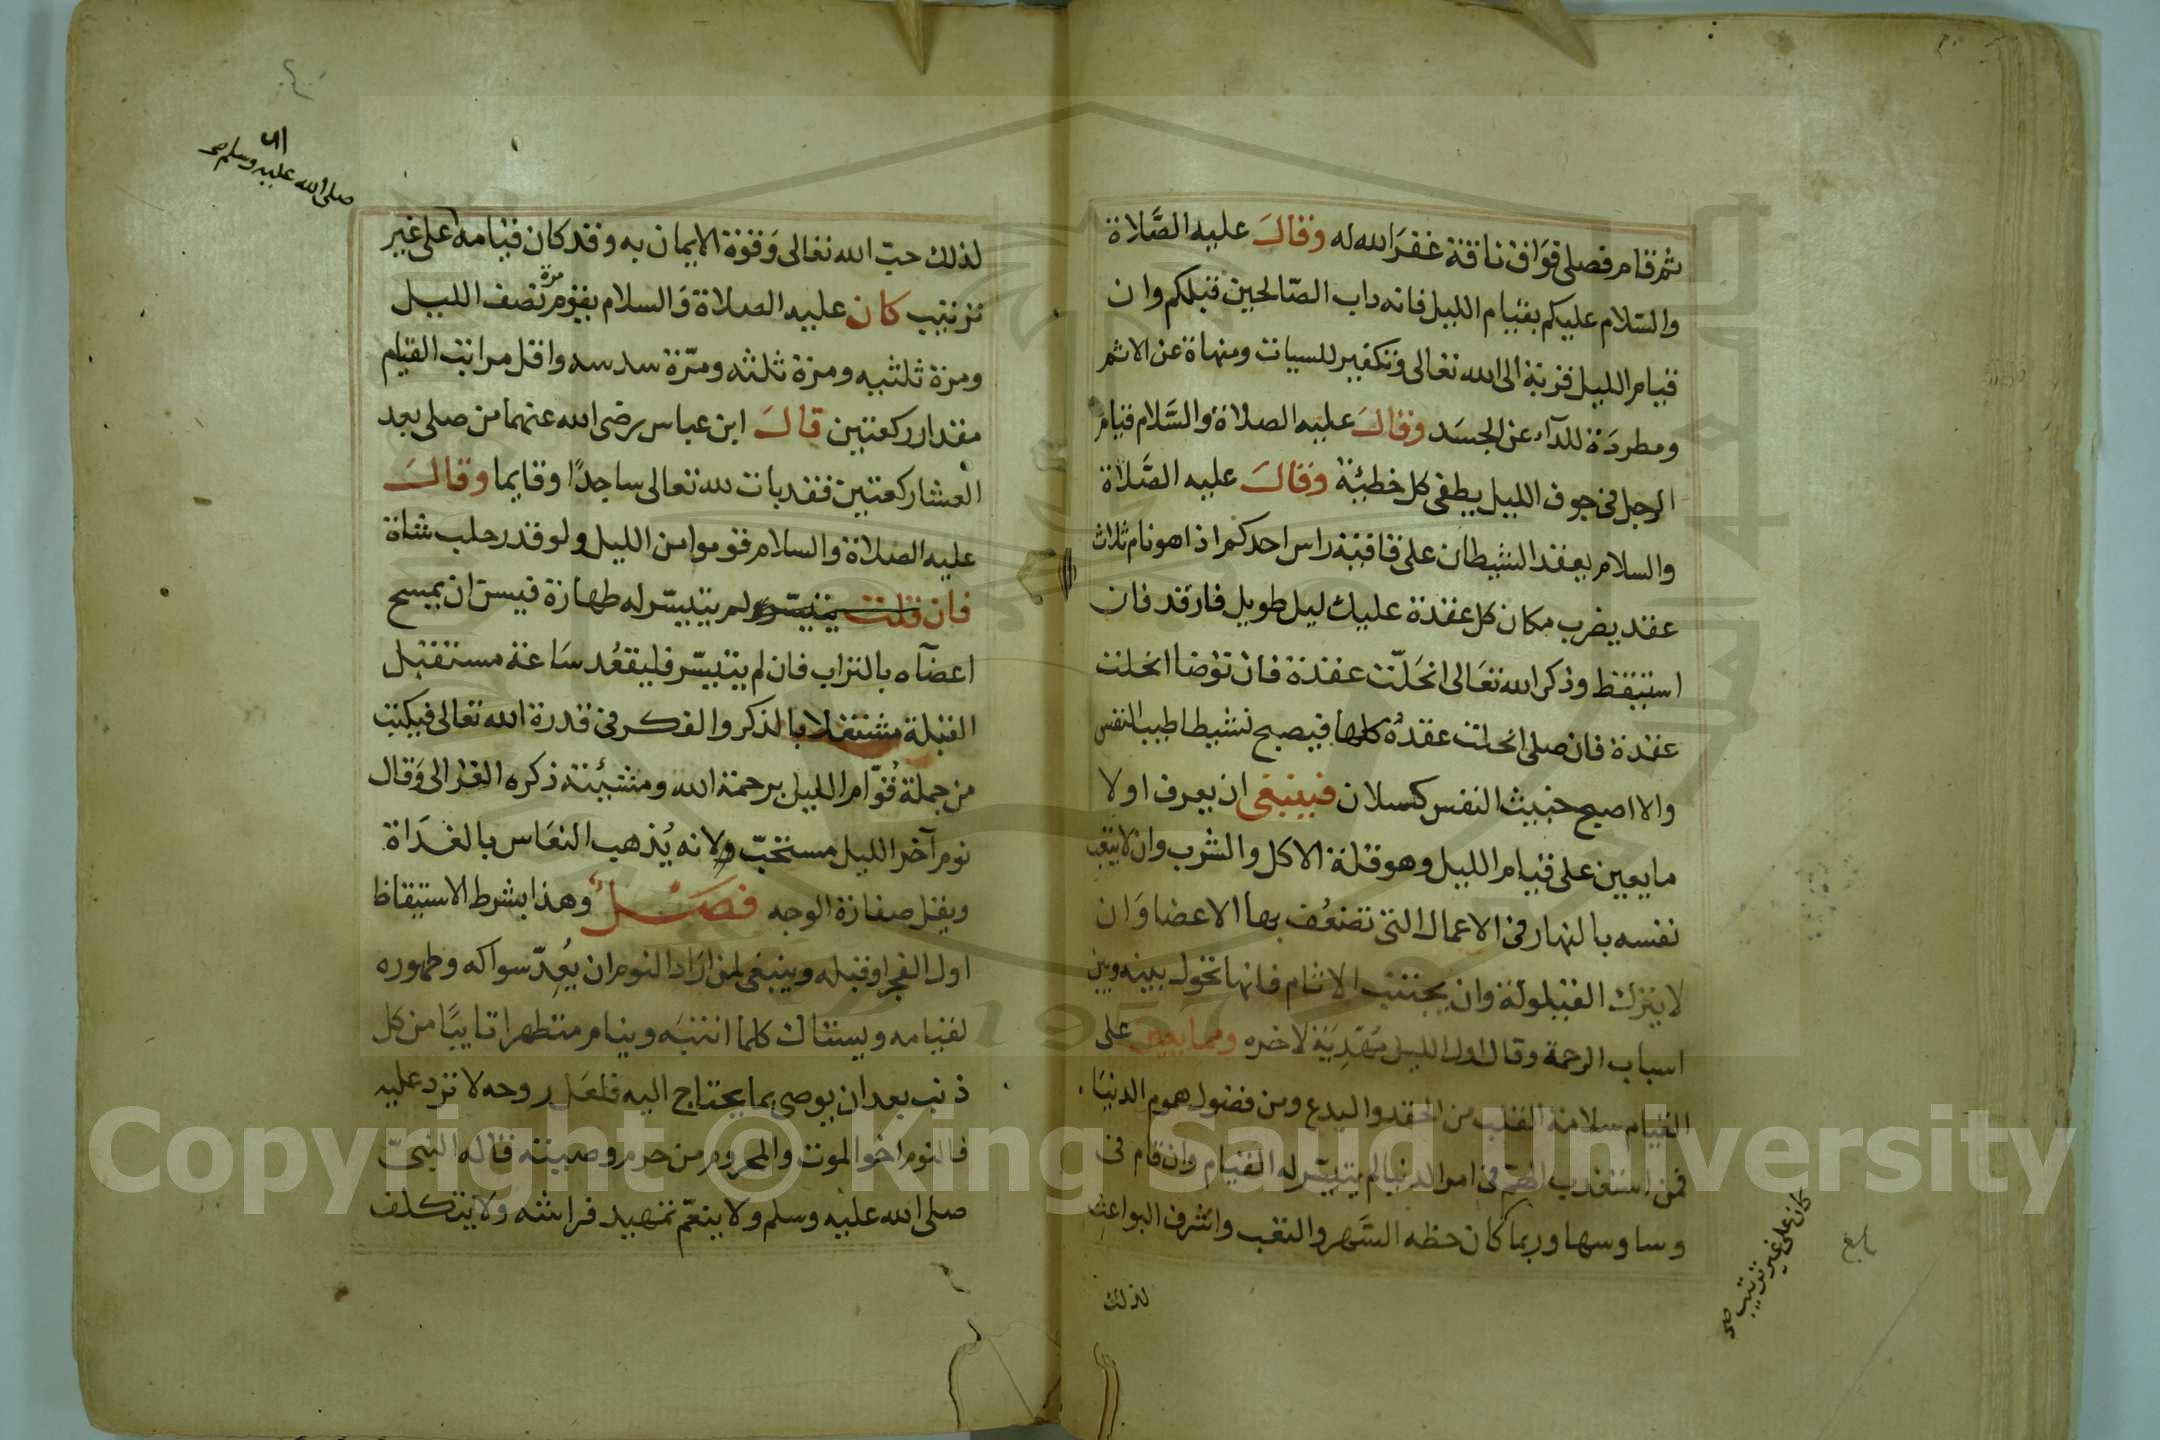 ثم قام فصلى فواق ناقة غفر الله له وقال عليه الصلاة
والسلام عليكم بقيام الليل فانه داب الصالحين قبلكم وان
قيام الليل قربة الى الله تعالى وتكفير للسيات ومنهاة عن الاثم
ومطردة للدآء عن الجسد وقال عليه الصلاة والسلام قيام
الرجل فى جوف الليل يطفى كل خطئة وقال عليه الصلاة
والسلام يعقد الشيطان على قافية راس احدكم اذا هو نام ثلاث
عقد يضرب مكان كل عقدة عليك ليل طويل فارقد فان
استيقظ وذكر الله تعالى انحلت عقدة فان توضا انحلت
عقدة فان صلى انحلت عقده كلها فيصبح نشيطا طيب النفس
والا اصبح خبيث النفس كسلان فينبغى ان يعرف اولا
ما يعين على قيام الليل وهو قلة الاكل والشرب وان لا يتعب
نفسه بالنهار فى الاعمال التى تضعف بها الاعضا وان
لا يترك القيلولة وان يجتنب الاثام فانها تحول بينه وبين
اسباب الرحمة وقال اول الليل لاخره ومما يعين على
القيام سلامة القلب من الحقد والبدع ومن فضول هموم الدنيا
فمن استغرب الهم فى امر الدنيا لم يتيسر له القيام وان قام فى
وساوسها وربما كان حظه السهر والتعب واشرف البواعث
لذلك
كان على غير ترتيب صح
بلغ
لذلك حب الله تعالى وقوة الايمان به وقد كان قيامه على غير
ترتيب كان عليه الصلاة والسلام يقوم مرة نصف الليل
ومرة ثلثيه ومرة ثلثه ومرة سدسه واقل مراتب القيام
مقدار ركعتين قال ابن عباس رضى الله عنهما من صلى بعد
العشا ركعتين فقد بات لله تعالى ساجدا وقايما وقال
عليه الصلاة والسلام قوموا من الليل ولو قدر حلب شاة
فان قلت يتيسر لم يتيسر له طهارة فيسن ان يمسح
اعضآه بالتراب فان لم يتيسر فليقعد ساعة مستقبل
القبلة مشتغلا بالذكر والفكر فى قدرة الله تعالى فيكتب
من جملة قوام الليل برحمة الله ومشيئته ذكره الغزالى وقال
نوم آخر الليل مستحب ولانه يذهب النعاس بالغداة
ويقل صفارة الوجه فصل وهذا بشرط الاستيقاظ
اول الفجر او قبله وينبغى لمن اراد النوم ان يعد سواكه وطهوره
لقيامه ويستاك كلما انتبه وينام متطهرا تايبا من كل
ذنب بعد ان يوصى بما يحتاج اليه فلعل روحه لا ترد عليه
فالنوم اخو الموت والمحروم من حرم وصيته قاله النبى
صلى الله عليه وسلم ولا يتنعم بتمهيد فراشه ولا يتكلف
صلى الله عليه وسلم صح
Copyright © King Saud University
1957